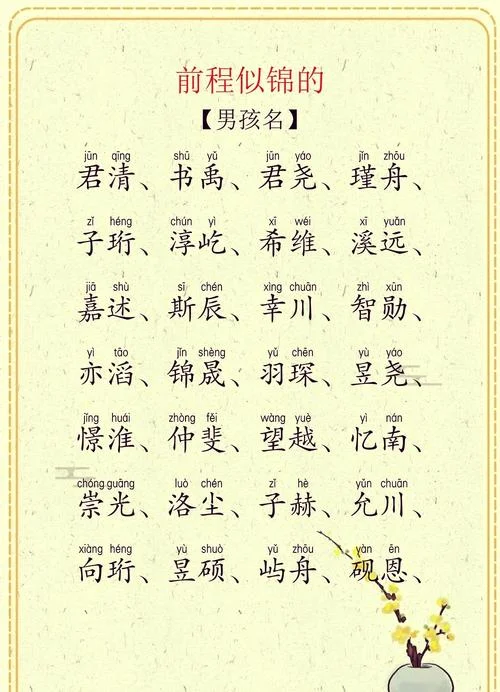 前程似锦的
【男孩名】
jūn qīng shū yǔ jūn yáo jǐn zhōu
君清、书禹、君尧、瑾舟、
zǐ héng chún yì xī wéi xī yuǎn
子珩、淳屹、希维、溪远、
jiā shù sī chén xìng chuān zhì xūn
嘉述、斯辰、幸川、智勋、
yì tāo jǐn shèng yǔ chēn yù yáo
亦滔、锦晟、羽琛、昱尧、
jǐng huái zhòng fěi wàng yuè yì nán
憬淮、仲斐、望越、忆南、
chóng guāng luò chén zǐ hè yǔn chuān
崇光、洛尘、子赫、允川、
xiàng héng yù shuò yǔ zhōu yàn ēn
向珩、昱硕、屿舟、砚恩、